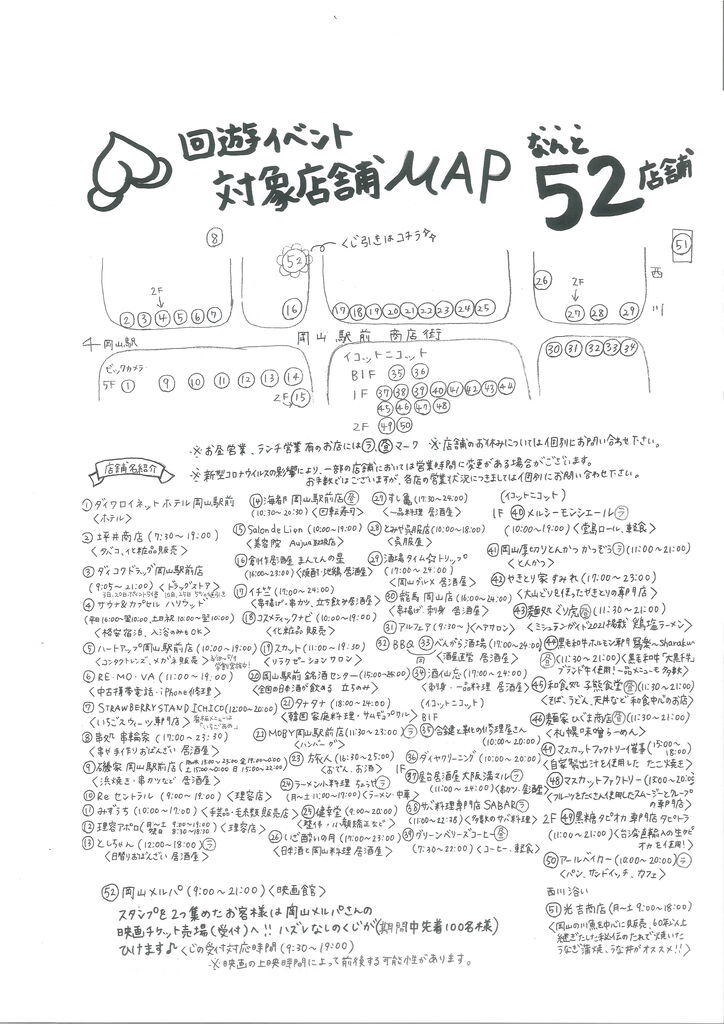 回遊イベント
対象店舗MAP
なんと
52店舗
くじ引きはコチラ
⑧
52
51
西川
2F
② ③ ④ ⑤ ⑥ ⑦
⑯
⑰ ⑱ ⑲ ⑳ ㉑ ㉒ ㉓ ㉔ ㉕
㉖
2F
㉗ ㉘ ㉙
岡山駅
岡山駅前商店街
ビックカメラ
5F ① ⑨ ⑩ ⑪ ⑫ ⑬ ⑭
2F ⑮
イコットニコット
B1F ㉟ ㊱
1F ㊲ ㊳ ㊴ ㊵ ㊶ ㊷ ㊸ ㊹
㊺ ㊻ ㊼ ㊽
2F ㊾ ㊿
㉚ ㉛ ㉜ ㉝ ㉞
※お昼営業、ランチ営業有のお店には㋶、昼マーク ※店舗のお休みについては個別にお問い合わせ下さい。
店舗名紹介
※新型コロナウイルスの影響により、一部の店舗においては営業時間に変更がある場合がございます。
お手数ではございますが、各店の営業状況につきましては個別にお問い合わせ下さい。
①ダイワロイネットホテル岡山駅前
<ホテル>
②坪井商店(7:30~19:00)
<タバコ、化粧品販売>
③ダイコクドラッグ岡山駅前店
(9:05~21:00)<ドラッグストア>
④サウナ&カプセル ハリウッド
<格安宿泊、入浴のみもOK>
⑤ハートアップ岡山駅前店(10:00~19:00)
<コンタクトレンズ、メガネ販売>
⑥RE・MO・VA(11:00~19:00)
<中古携帯電話・iPhone修理>
⑦STRAWBERRY STAND ICHICO(12:00~20:00)
<いちごスウィーツ専門店>
⑧串処 串輪家(17:00~23:30)
<串や手作りおばんざい 居酒屋>
⑨磯家 岡山駅前店
<浜焼き・串カツなど 居酒屋>
⑩Re セントラル(9:00~19:00)<理容店>
⑪みずうち(10:00~17:00)<手芸品・毛糸類 販売店>
⑫理容アポロ <理容店>
⑬としちゃん(12:00~18:00)㋶
<日替りおばんざい 居酒屋>
⑭海都 岡山駅前店昼
(10:30~20:30)<回転寿司>
⑮Salon de Lion(10:00~19:00)
<美容院 Aujua取扱店>
⑯創作居酒屋 まんてんの星
(16:00~23:00)<焼酎・地鶏 居酒屋>
⑰イチ(17:00~24:00)
<串揚げ・串カツ、立ち飲み居酒屋>
⑱コスメティックナビ(10:00~19:00)
<化粧品販売>
⑲スカット(11:00~19:30)
<リラクゼーションサロン>
⑳岡山駅前 銘酒センター(15:00~)
<全国の日本酒が飲める 立ちのみ>
㉑タナタナ(18:00~24:00)
<韓国家庭料理・サムギョプサル>
㉒MOBY岡山駅前店(11:00~21:00)
<ハンバーグ>
㉓旅人(16:30~25:00)
<おでん、お酒>
㉔ラーメン小料理 ちょうぜ㋶
<ラーメン・中華>
㉕健幸堂(9:00~20:00)
<整体・小顔矯正など>
㉖いざ酔いの月(17:00~23:00)
<日本酒と岡山料理 居酒屋>
㉗すし亀(17:30~24:00)
<一品料理 居酒屋>
㉘とみや呉服店(10:00~18:00)
<呉服屋>
㉙酒場タイム☆トリップ
(17:00~24:00)
<岡山グルメ 居酒屋>
㉚龍馬 岡山店(16:00~24:00)
<串揚げ、刺身 居酒屋>
㉛アルフェア(9:30~)<ヘアサロン>
㉜BBQ ㉝べんがら酒場(17:00~24:00)
<酒屋直営 居酒屋>
㉞酒仙(17:00~24:00)
<刺身・一品料理 居酒屋>
(イコットニコット)
B1F
㉟合鍵と靴の修理屋さん
(10:00~20:00)
㊱ダイヤクリーニング(10:00~20:00)
1F
㊲屋台居酒屋 大阪 満マル㋶
(11:00~24:00)<串カツ・居酒屋>
㊳サバ料理専門店 SABAR㋶
(11:00~22:38)<多数のサバ料理>
㊴グリーンベリーズコーヒー昼
(7:30~22:00)<コーヒー、軽食>
(イコットニコット)
1F ㊵メルシーモンシェール㋶
(10:00~19:00)<堂島ロール、軽食>
㊶岡山厚切りとんかつ かつぞう㋶(11:00~21:00)
<とんかつ>
㊷やきとり家 すみれ(17:00~23:00)
<大山どりを使ったやきとりの専門店>
㊸麺処 ぐり虎昼(11:30~21:00)
<ミシュランガイド2021掲載 鶏塩ラーメン>
㊹黒毛和牛ホルモン専門 -Sharaku-
昼(11:30~21:00)<黒毛和牛「大黒千牛」
ブランド牛使用!一品メニューも多数>
㊺和食処 子熊食堂昼(11:30~21:00)
<そば、うどん、天丼など和食中心のお店>
㊻麺家 ひばま商店昼(11:30~21:00)
<札幌味噌らーめん>
㊼マスカットファクトリー(15:00~18:00)
<自家製出汁を使用した たこ焼き>
㊽マスカットファクトリー(15:00~20:00)
<フルーツをたくさん使用したスムージーとクレープの専門店>
2F ㊾黒糖タピオカ専門店 タピトラ
(11:00~21:00)<台湾直輸入の生タピオカを使用!>
㊿アールベイカー(10:00~20:00)㋶
<パン、サンドイッチ、カフェ>
西川沿い
51光吉商店(月~土 9:00~18:00)
<岡山の川魚を中心に販売、60年以上
継ぎたした秘伝のたれで焼いた
うなぎ蒲焼、うな丼がオススメ!!>
52岡山メルパ(9:00~21:00)<映画館>
スタンプを2つ集めたお客様は岡山メルパさんの
映画チケット売場(受付)へ!!ハズレなしのくじが(期間中先着100名様)
ひけます♪<くじの受付対応時間(9:30~19:00)
※映画の上映時間によって前後する可能性があります。